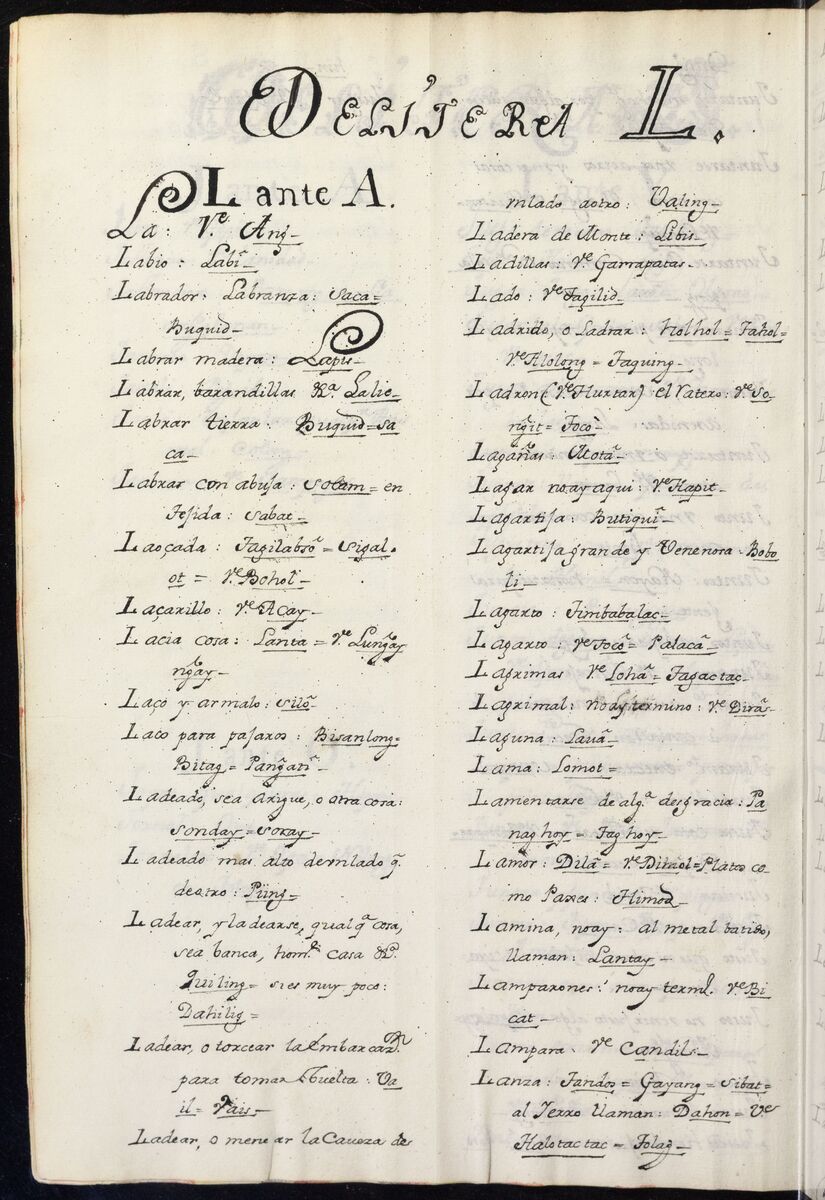 DE LITERA L.
L ante A.
La: Vᵉ Ang̃_
Labio: Labĩ_
Labrador: Labranza: Saca=
Buquid_
Labrar madera: Lapis_
Labrar, barandillas &ᵃ. Lalic_
Labrar tierra: Buquid=sa
ca_
Labrar con abuja: Solam_ en
Tejida: Sabat_
Laoçada: Tagilabsõ= Sigal.
ot= Vᵉ Boholˈ_
Laçarillo: Vᵉ Acay_
Lacia cosa: Lanta= Vᵉ Lung̃ay
ng̃ay_
Laço y armalo: Silõ_
Laco para pajaros: Bisanlong=
Bitag= Pang̃atĩ_
Ladeado, sea arigue, o otra cosa:
Sonday=Soray_
Ladeado mas alto devnlado q̃.
deotro: Piing=
Ladear, y ladearse, qualqᵃ cosa,
sea banca, homᵉ. casa &ᵃ.
Quiling= sies muy poco:
Dahilig=
Ladear, o torcear la Embarcazⁿ.
para tomar buelta: Va
il= Vais_
Ladear, o menear la Caveza de
mlado aotro: Valing_
Ladera de Monte: Libis_
Ladillas: Vᵉ Garrapatas_
Lado: Vᵉ Tagilid_
Ladrido, o Ladrar: holhol= Tahol=
Vᵉ Alolong= Taquing_
Ladron (Vᵉ Hurtar) el Ratero: Vᵉ So
ng̃it= Tocõ_
Lagañas: Motã_
Lagar noay aqui: Vᵉ Hapit_
Lagartija: Butiquĩ_
Lagartija grande y Venenosa: Bobo
li_
Lagarto: Timbabalac_
Lagarto: Vᵉ Tocõ= Palacã_
Lagrimas Vᵉ Lohã= Tagactac_
Lagrimal: noay termino: Vᵉ Dirãs_
Laguna: Lavã_
Lama: Lomot=
Lamentarse de algᵃ. desgracia: Pa
naghoy= Taghoy_
Lamer: Dilã= Vᵉ Dimol=Platos co
mo Panes: Himod_
Lamina, noay: al metal batido,
llaman: Lantay_
Lamparones: noay termᵒ. Vᵉ Bi
cat_
Lampara: Vᵉ Candil_
Lanza: Tandos= Gayang= Sibat=
al Ierro llaman: Dahon= Vᵉ
Halotactac= Tolag_